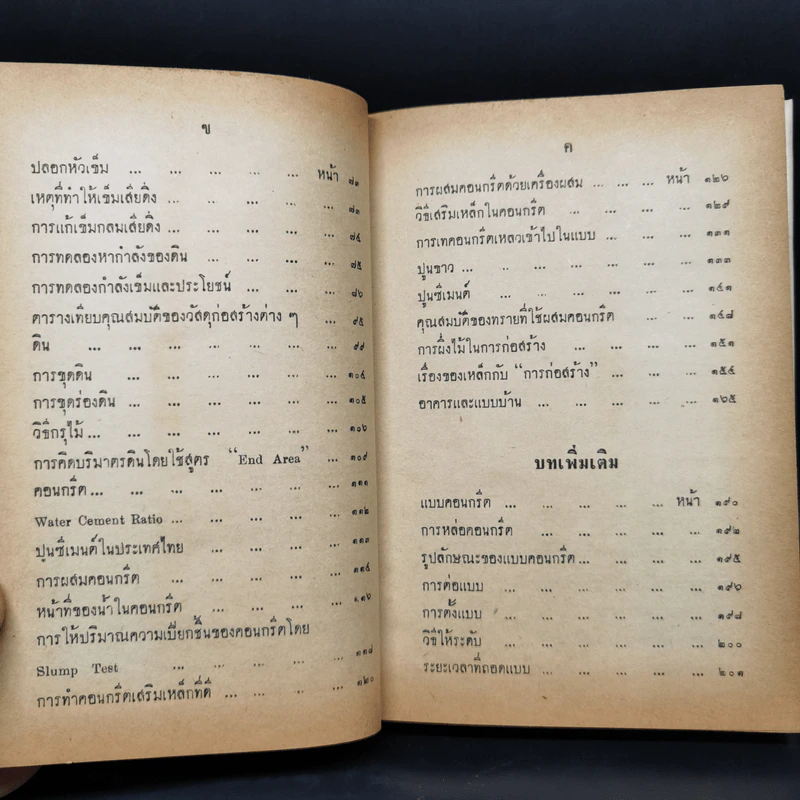 ข
ปลอกหัวเข็ม ... ... ... ... ... หน้า ๗๑
เหตุที่ทำให้เข็มเสียดิ่ง ... ... ... ... ๗๑
การแก้เข็มกลมเสียดิ่ง ... ... ... ... ๗๔
การทดลองหากำลังของดิน ... ... ... ๗๕
การทดลองกำลังเข็มและประโยชน์ ... ... ... ๘๖
ตารางเทียบคุณสมบัติของวัสดุก่อสร้างต่าง ๆ ... ๙๕
ดิน ... ... ... ... ... ... ... ๙๙
การขุดดิน ... ... ... ... ... ... ๑๐๔
การขุดร่องดิน ... ... ... ... ... ... ๑๐๕
วิธีกรุไม้ ... ... ... ... ... ... ... ๑๐๖
การคิดบริมาตรดินโดยใช้สูตร “End Area” ... ๑๐๙
คอนกรีต ... ... ... ... ... ... ... ๑๑๑
Water Cement Ratio ... ... ... ... ... ๑๑๒
ปูนซีเมนต์ในประเทศไทย ... ... ... ... ๑๑๓
การผสมคอนกรีต ... ... ... ... ... ๑๑๔
หน้าที่ของน้ำในคอนกรีต ... ... ... ... ๑๑๖
การให้ปริมาณความเปียกชื้นของคอนกรีตโดย
Slump Test ... ... ... ... ... ๑๑๘
การทำคอนกรีตเสริมเหล็กที่ดี ... ... ... ... ๑๒๐
ค
การผสมคอนกรีตด้วยเครื่องผสม ... ... ... หน้า ๑๒๖
วิธีเสริมเหล็กในคอนกรีต ... ... ... ... ๑๒๙
การเทคอนกรีตเหลวเข้าไปในแบบ ... ... ... ๑๓๑
ปูนขาว ... ... ... ... ... ... ๑๓๓
ปูนซีเมนต์ ... ... ... ... ... ... ๑๔๑
คุณสมบัติของทรายที่ใช้ผสมคอนกรีต ... ... ๑๔๘
การผึ่งไม้ในการก่อสร้าง ... ... ... ... ๑๕๑
เรื่องของเหล็กกับ “การก่อสร้าง” ... ... ... ๑๕๔
อาคารและแบบบ้าน ... ... ... ... ... ๑๖๕
บทเพิ่มเติม
แบบคอนกรีต ... ... ... ... ... หน้า ๑๙๐
การหล่อคอนกรีต ... ... ... ... ... ๑๙๒
รูปลักษณะของแบบคอนกรีต ... ... ... ... ๑๙๕
การต่อแบบ ... ... ... ... ... ๑๙๖
การตั้งแบบ ... ... ... ... ... ๑๙๘
วิธีให้ระดับ ... ... ... ... ... ๒๐๐
ระยะเวลาที่ถอดแบบ ... ... ... ... ... ๒๐๑